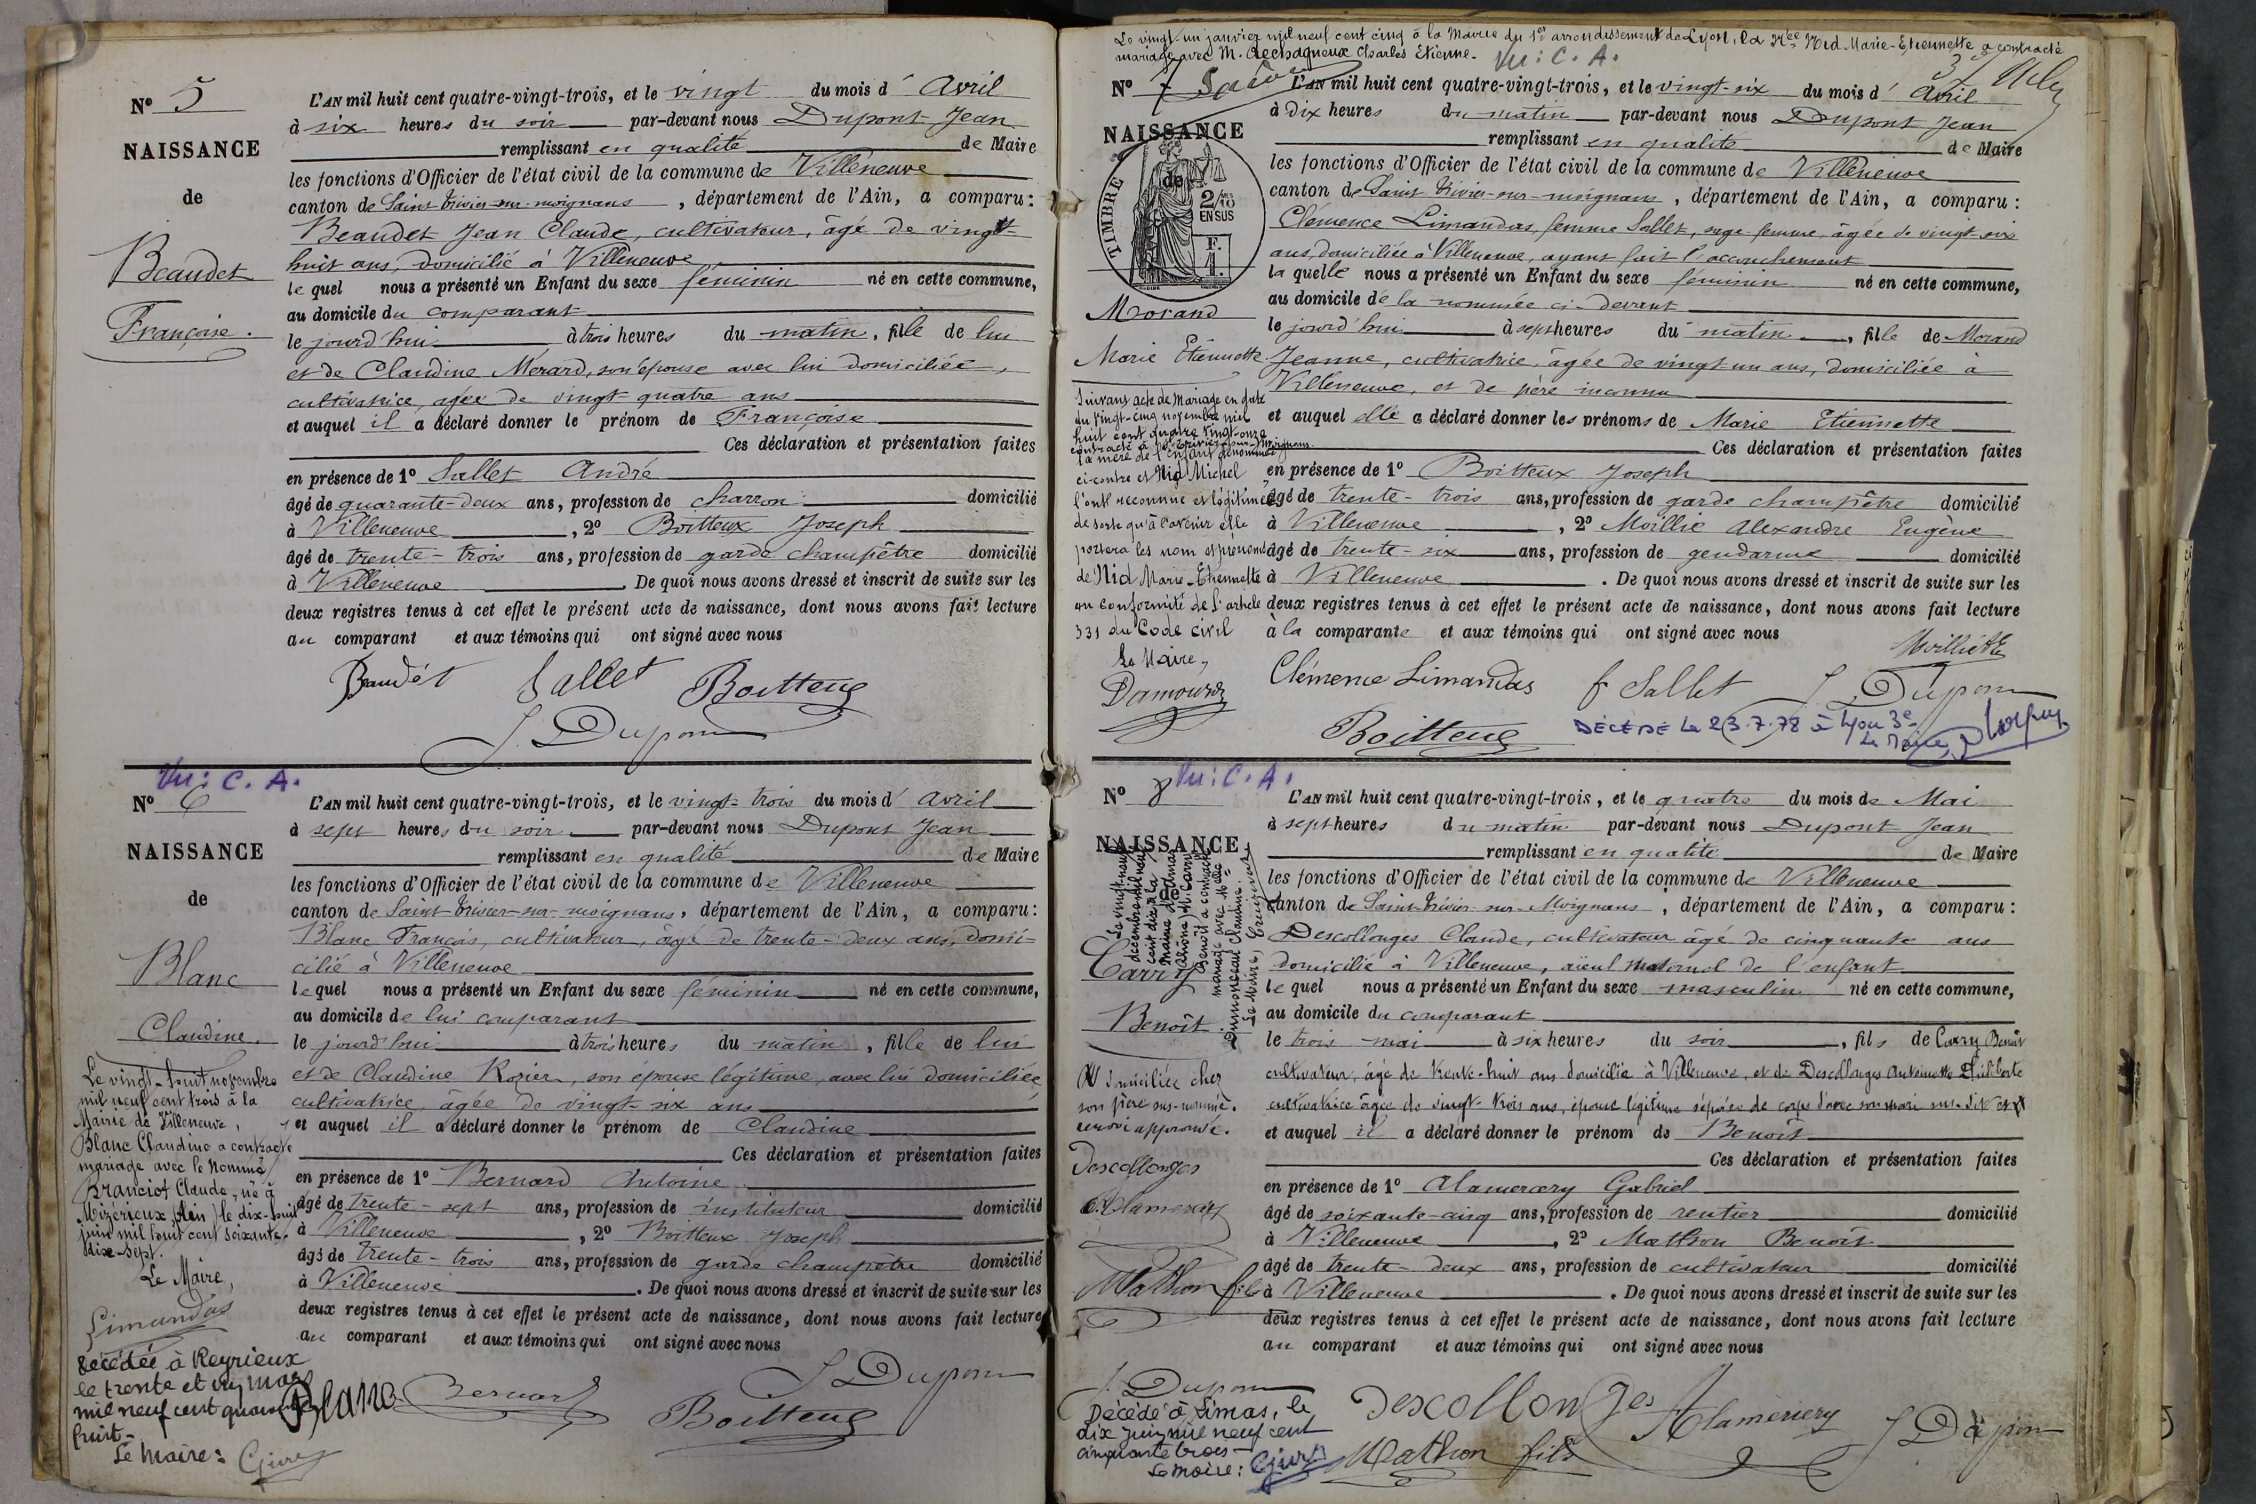 Nº 5
NAISSANCE
de
Beaudet
Françoise.
L'AN mil huit cent quatre-vingt-trois, et le vingt du mois d' Avril
à six heures du soir par-devant nous Dupont Jean
remplissant en qualité de Maire
les fonctions d'Officier de l'état civil de la commune de Villeneuve
canton de Saint-Trivier-sur-moignans, département de l'Ain, a comparu:
Beaudet Jean Claude, cultivateur, âgé de vingt-
huit ans, domicilié à Villeneuve
lequel nous a présenté un Enfant du sexe féminin né en cette commune,
au domicile du comparant
le jourd'hui à trois heures du matin, fille de lui
et de Claudine Morard, son épouse avec lui domiciliée,
cultivatrice, âgée de vingt quatre ans
et auquel il a déclaré donner le prénom de Françoise
Ces déclaration et présentation faites
en présence de 1º Sallet André
âgé de quarante-deux ans, profession de charron domicilié
à Villeneuve, 2º Boitteux Joseph
âgé de trente-trois ans, profession de garde champêtre domicilié
à Villeneuve. De quoi nous avons dressé et inscrit de suite sur les
deux registres tenus à cet effet le présent acte de naissance, dont nous avons fait lecture
au comparant et aux témoins qui ont signé avec nous
Beaudet Sallet Boitteux
J. Dupont
Vu: C. A.
Nº 6
NAISSANCE
de
Blanc
Claudine.
Le vingt-huit novembre
mil neuf cent trois à la
Mairie de Villeneuve,
Blanc Claudine a contracté
mariage avec le nommé
Branciot Claude, né à
Mizérieux (Ain) le dix-huit
juin mil huit cent soixante-
dix-sept.
Le Maire,
Limandas
décédée à Reyrieux
le trente et un mars
mil neuf cent quarante
huit-
Le maire:
L'AN mil huit cent quatre-vingt-trois, et le vingt-trois du mois d' avril
à sept heures du soir par-devant nous Dupont Jean
remplissant en qualité de Maire
les fonctions d'Officier de l'état civil de la commune de Villeneuve
canton de Saint-Trivier-sur-moignans, département de l'Ain, a comparu:
Blanc François, cultivateur, âgé de trente-deux ans, domi-
cilié à Villeneuve
lequel nous a présenté un Enfant du sexe féminin né en cette commune,
au domicile de lui comparant
le jourd'hui à trois heures du matin, fille de lui
et de Claudine Rozier, son épouse légitime, avec lui domiciliée,
cultivatrice, âgée de vingt-six ans
et auquel il a déclaré donner le prénom de Claudine
Ces déclaration et présentation faites
en présence de 1º Bernard Antoine
âgé de trente-sept ans, profession de instituteur domicilié
à Villeneuve, 2º Boitteux Joseph
âgé de trente-trois ans, profession de garde champêtre domicilié
à Villeneuve. De quoi nous avons dressé et inscrit de suite sur les
deux registres tenus à cet effet le présent acte de naissance, dont nous avons fait lecture
au comparant et aux témoins qui ont signé avec nous
J. Dupont
Blanc Bernard Boitteux
Le vingt un janvier mil neuf cent cinq à la Mairie du 1er arrondissement de Lyon, la Nid Marie-Etiennette a contracté
mariage avec M. Charles Etienne. Vu: C. A.
Nº 7
NAISSANCE
de
TIMBRE
2/10
EN SUS
F.
1.
Morand
Marie Etiennette
Suivant acte de Mariage en date
du vingt-cinq novembre mil
huit cent quatre vingt-onze
contracté à St Trivier-sur-Moignans
la mère de l'enfant dénommée
ci-contre et Nid Michel
l'ont reconnue et légitimée
de sorte qu'à l'avenir elle
portera les nom et prénoms
de Nid Marie-Etiennette
en conformité de l'article
331 du Code civil
Le Maire,
Damouzez
L'AN mil huit cent quatre-vingt-trois, et le vingt-six du mois d' Avril
à Dix heures du matin par-devant nous Dupont Jean
remplissant en qualité de Maire
les fonctions d'Officier de l'état civil de la commune de Villeneuve
canton de Saint-Trivier-sur-moignans, département de l'Ain, a comparu:
Clémence Limandas, femme Sallet, sage-femme, âgée de vingt-six
ans, domiciliée à Villeneuve, ayant fait l'accouchement
laquelle nous a présenté un Enfant du sexe féminin né en cette commune,
au domicile de la nommée ci-devant
le jourd'hui à sept heures du matin, fille de Morand
Jeanne, cultivatrice, âgée de vingt-un ans, domiciliée à
Villeneuve, et de père inconnu
et auquel elle a déclaré donner les prénoms de Marie Etiennette
Ces déclaration et présentation faites
en présence de 1º Boitteux Joseph
âgé de trente-trois ans, profession de garde champêtre domicilié
à Villeneuve, 2º Moillie Alexandre Eugène
âgé de trente-six ans, profession de gendarme domicilié
à Villeneuve. De quoi nous avons dressé et inscrit de suite sur les
deux registres tenus à cet effet le présent acte de naissance, dont nous avons fait lecture
à la comparante et aux témoins qui ont signé avec nous
Clémence Limandas f Sallet J. Dupont
Boitteux
DÉCÉDÉ le 23.7.78 à Lyon 3e
Le Maire,
Nº 8
Vu: C. A.
NAISSANCE
Le vingt-neuf
décembre mil neuf
cent dix à la
mairie d'
M. Carry
Benoît a contracté
mariage avec Melle
Dumonceau Claudine.
Le Maire,
Carry
Benoît.
domiciliée chez
son père sus-nommé.
renvoi approuvé.
Descollonges
Alamercery
Mathon fils
J. Dupont
Décédé à Limas, le
dix juin mil neuf cent
cinquante trois-
Le maire:
L'AN mil huit cent quatre-vingt-trois, et le quatre du mois de Mai
à sept heures du matin par-devant nous Dupont Jean
remplissant en qualité de Maire
les fonctions d'Officier de l'état civil de la commune de Villeneuve
canton de Saint-Trivier-sur-Moignans, département de l'Ain, a comparu:
Descollonges Claude, cultivateur âgé de cinquante ans
domicilié à Villeneuve, aïeul maternel de l'enfant
lequel nous a présenté un Enfant du sexe masculin né en cette commune,
au domicile du comparant
le trois mai à six heures du soir, fils de Carry Benoît
cultivateur, âgé de trente-huit ans domicilié à Villeneuve, et de Descollonges Antoinette Philiberte
cultivatrice âgée de vingt-trois ans, épouse légitime séparée de corps d'avec son mari sus-dit et
et auquel il a déclaré donner le prénom de Benoît
Ces déclaration et présentation faites
en présence de 1º Alamercery Gabriel
âgé de soixante-cinq ans, profession de rentier domicilié
à Villeneuve, 2º Mathon Benoît
âgé de trente-deux ans, profession de cultivateur domicilié
à Villeneuve. De quoi nous avons dressé et inscrit de suite sur les
deux registres tenus à cet effet le présent acte de naissance, dont nous avons fait lecture
au comparant et aux témoins qui ont signé avec nous
Descollonges Alamercery J. Dupont
Mathon fils